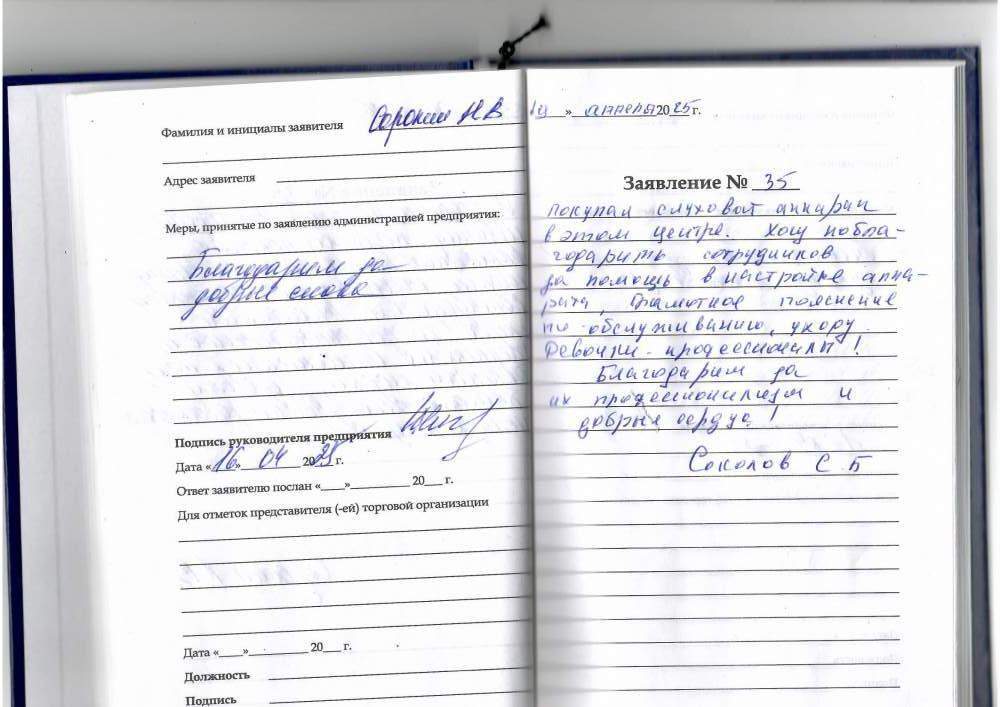 Фамилия и инициалы заявителя Сорокин Н В
Адрес заявителя
Меры, принятые по заявлению администрацией предприятия:
Благодарим за
добрые слова
Подпись руководителя предприятия
Дата «16» 04 2025 г.
Ответ заявителю послан «____»__________ 20___ г.
Для отметок представителя (-ей) торговой организации
Дата «____»__________ 20___ г.
Должность
Подпись
» апреля 2025 г.
Заявление № 35
покупал слуховой аппарат
в этом центре. Хочу побла-
годарить сотрудников
за помощь в настройке аппа-
рата, Грамотное пояснение
по обслуживанию, уходу.
Девочки - профессионалы!
Благодарим за
их профессионализм и
добрые сердца!
Соколов С. Б